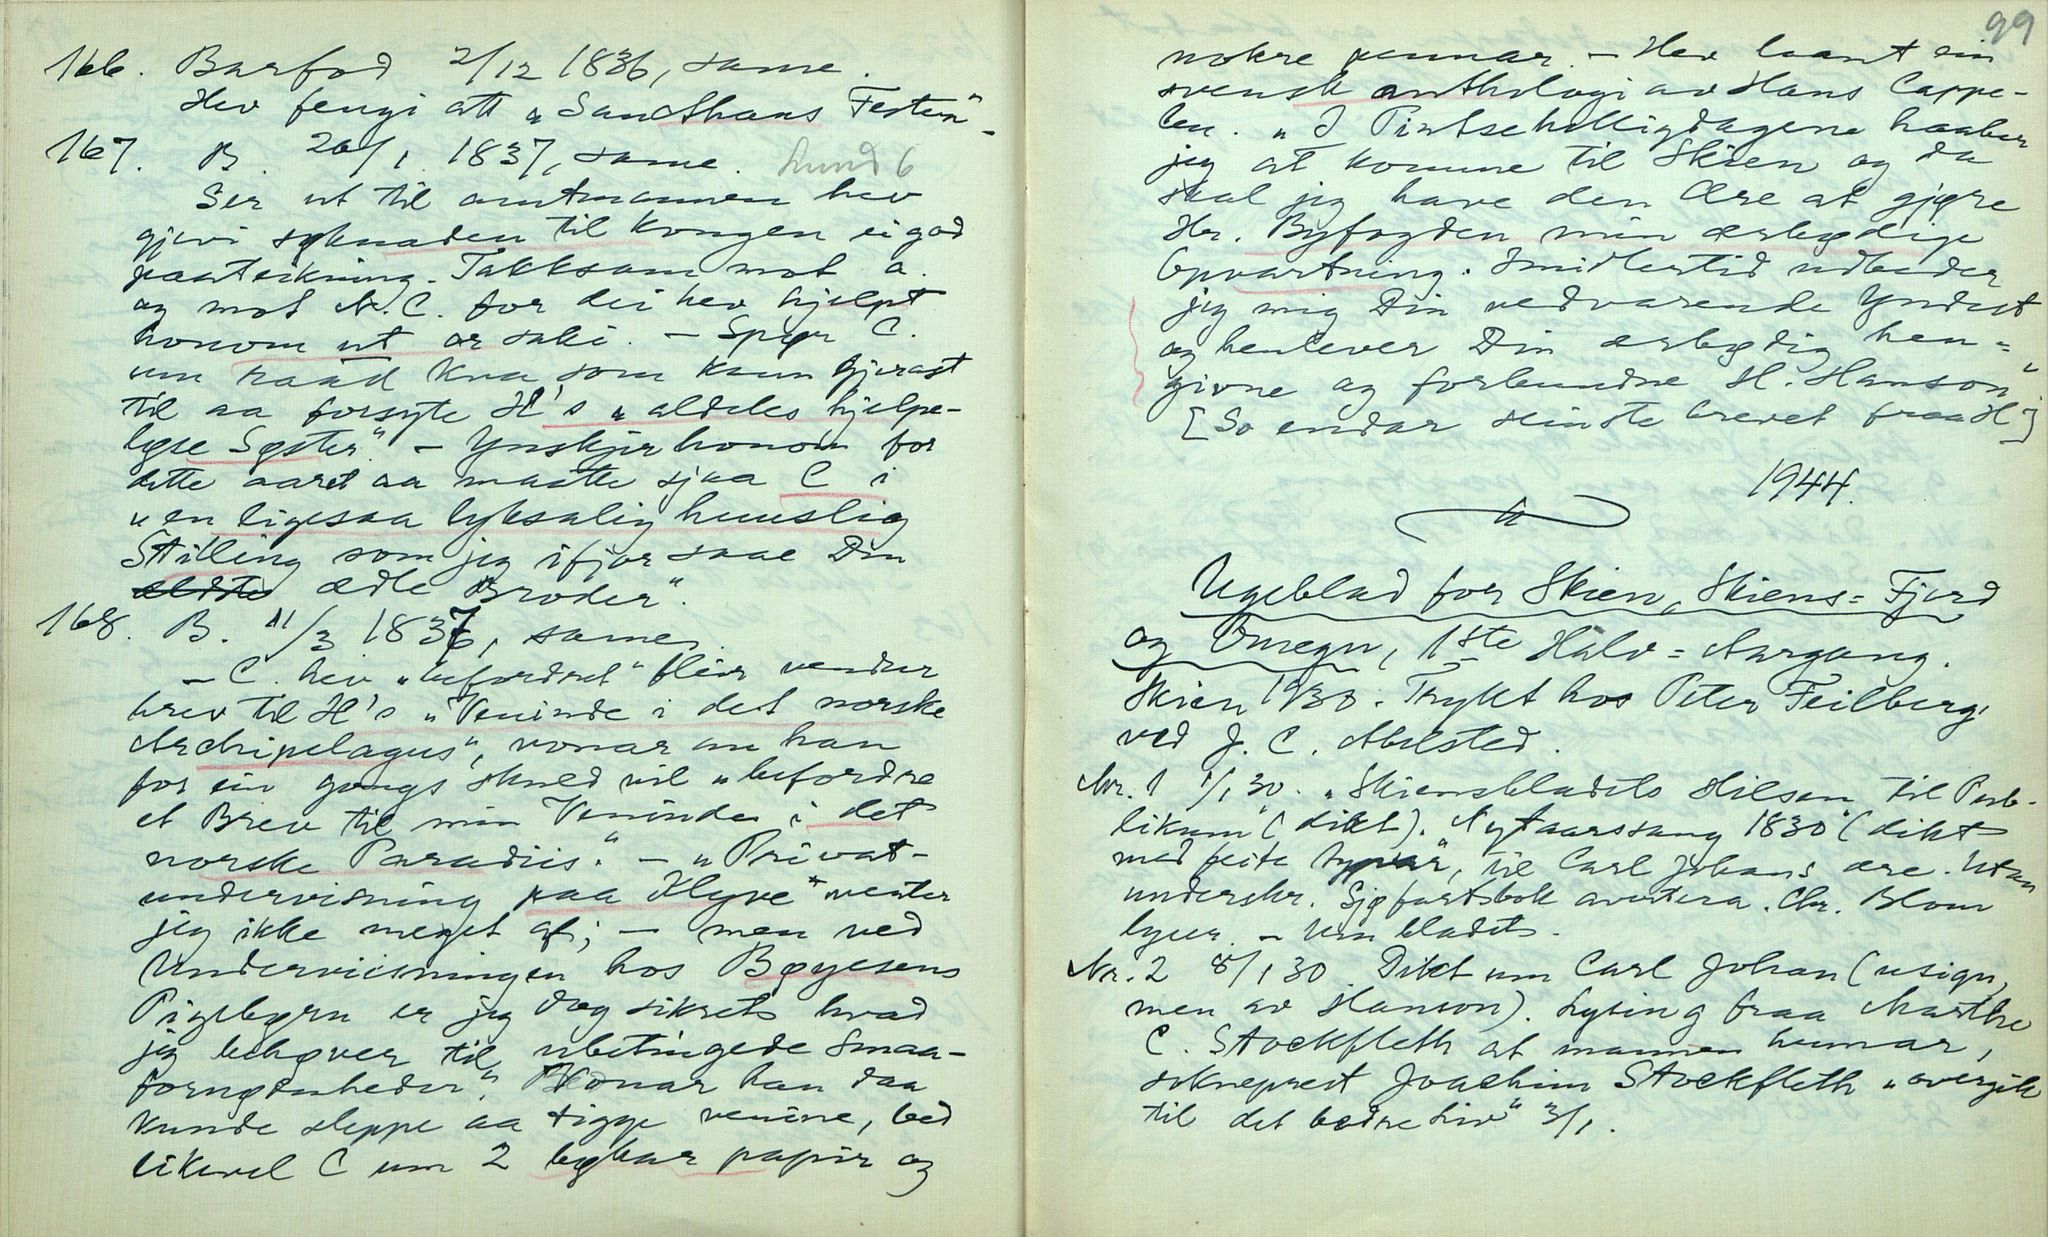 166. Barfod 2/12 1836, same.
Hev fengi att „Sancthans Festen"-
167. B. 20/1 1837, same. Lund 6
Ser ut til amtmannen hev
gjevi søknaden til Kongen ei god
paateikning. Takksam mot a.
og mot N. C. for dei hev hjelpt
honom ut or saki. – Spør C.
um raad kva som kann gjerast
til aa forsyte H's „aldeles hjelpe-
løse Søster." – Ynskjer honom for
dette aaret aa maatte sjaa C i
„en ligesaa lyksalig huuslig
Stilling som jeg ifjor saae Din
ældste ædle Broder".
168. B. 11/3 1837, same.
– C. hev „befordret" fleir vendur
brev til H's „Veninde i det norske
Archipelagus", vonar um han
for ein gongs skuld vil „befordre
et Brev til min Veninde i det
norske Paradiis." – „Privat-
undervisning paa Klyve" venter
jeg ikke meget af; – men ved
Underviisningen hos Bøyesens
Pigebørn er jeg dog sikret hvad
jeg behøver til ubetingede Smaa-
fornødenheder." Vonar han daa
kunde sleppe aa tigge venine, bed
likevel C um 2 bøker papir og
99
nokre pennar. – Hev laant ein
svensk anthologi av Hans Cappe-
len. „I Pintsehelligdagene haaber
jeg at komme til Skien og da
skal jeg have den Ære at gjøre
Hr. Byfogden min ærbødige
Opvartning. Imidlertid udbeder
jeg mig Din vedvarende Yndest
og henlever Din ærbødig hen-
givne og forbundne H. Hanson"
[So endar siste brevet fraa H]
1944.
Ugeblad for Skien, Skiens-Fjord
og Omegn, 1ste Halv-Aargang.
Skien 1830. Trykt hos Peter Feilberg,
ved J. C. Melsted.
Nr. 1 1/1 30. „Skiensbladets Hilsen til Pub-
likum" (dikt). Nytaarssang 1830 (dikt
med feite typar", til Carl Johans ære. Utan
underskr. Sjøfartsbok avertera. Chr. Blom
lyser. – Um bladet.
Nr. 2 8/1 30 Dikt um Carl Johan (usign,
men av Hanson). Lysing fraa Marthe
C. Stockfleth at mannen hennar,
sokneprest Joachim Stockfleth „overgik
til det bedre Liv" 3/1.